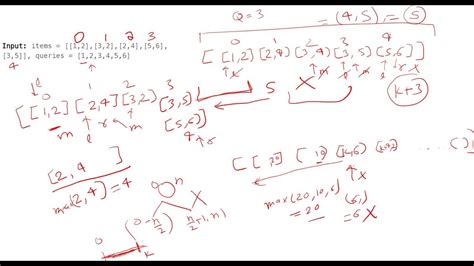 Q=3 = (4,5), = (5)
0 1 2 3
Input: items = [[1,2],[3,2],[2,4],[5,6],
[3,5]], queries = [1,2,3,4,5,6]
4
0 1 2 3 4
[ [1,2] [2,4] [3,4] [3,5] [5,6] ]
0 1 2 3
[ [1,2] [2,4] [3,2] [3,5]
[5,6] ]
5 X
k+3
[2,4]
max(2,4)=4
n
0 (0-n/2) n/2+1, n)
k
max(20,10,6)
=20
=6 X